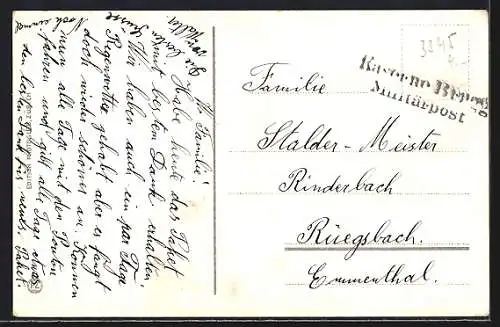 W. Familie!
Habe heute das Paket
mit bestem Dank erhalten
Wir haben auch ein par Tage
Regenwetter gehabt aber es fängt
doch wieder schönes an. Können
nun alle Tage mit den Ponton
fahren und gibt alle Tage etwas
den besten Dank für neues. Paket.
Noch einmal
die besten Grüsse
3345
Kaserne
Militärpost
Familie
Stalder-Meister
Rinderbach
Rüegsbach.
Emmenthal.